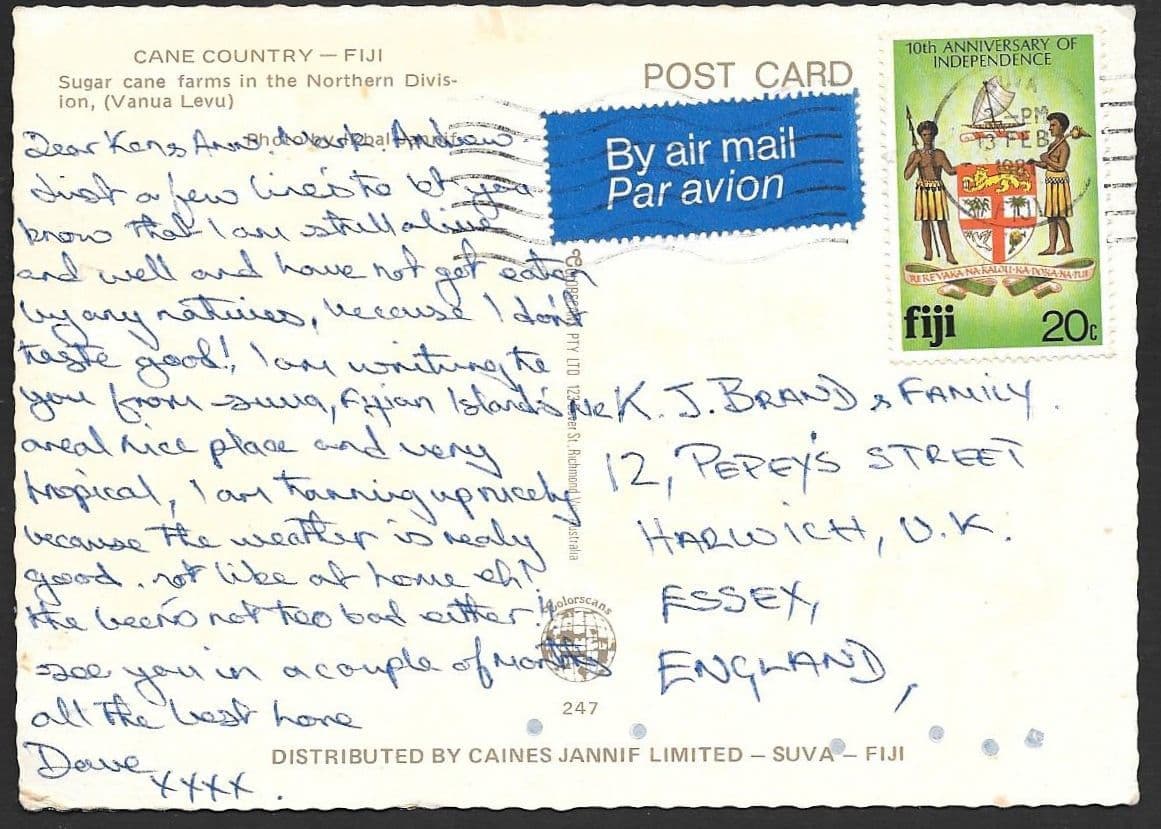 CANE COUNTRY — FIJI
Sugar cane farms in the Northern Divis-
ion, (Vanua Levu)
Photo by
POST CARD
By air mail
Par avion
10th ANNIVERSARY OF
INDEPENDENCE
SUVA
2 -PM
13 FEB
REREVAKA·NA·KALOU·KA·DOKA·NA·TUI
fiji
20c
Dear Ken, Ann. Andrew
Just a few lines to let you
know that I am still alive
and well and have not got eaten
by any natives, because I don't
taste good! I am writing to
you from Suva, Fijian Islands
a real nice place and very
tropical, I am tanning up nicely
because the weather is realy
good. not like at home eh!
the beer's not too bad either!!
see you in a couple of Months
all the best love
Dave
xxxx.
K. J. BRAND & FAMILY.
12, PEPEY'S STREET
HARWICH, U.K.
ESSEX,
ENGLAND,
PTY LTD 123 St. Richmond Australia
Colorscans
247
DISTRIBUTED BY CAINES JANNIF LIMITED — SUVA — FIJI